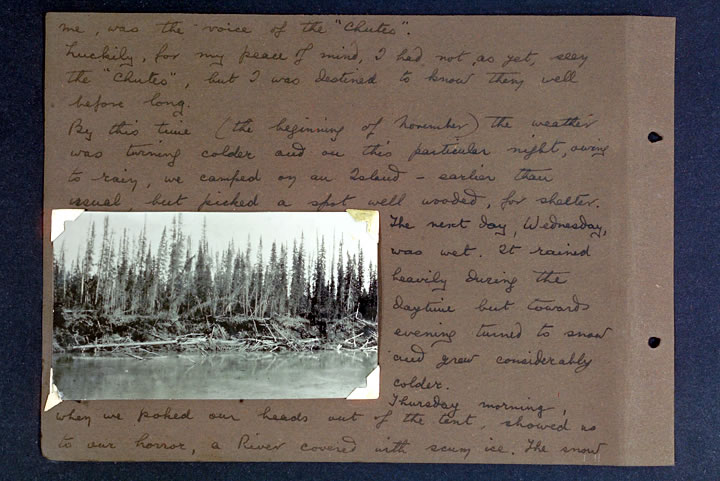 me, was the voice of the "Chutes".
Luckily, for my peace of mind, I had not, as yet, seen
the "Chutes", but I was destined to know them well
before long.
By this time (the beginning of November) the weather
was turning colder and on this particular night, owing
to rain, we camped on an Island - earlier than
usual, but picked a spot well wooded, for shelter.
The next day, Wednesday,
was wet. It rained
heavily during the
daytime but towards
evening turned to snow
and grew considerably
colder.
Thursday morning,
when we poked our heads out of the tent, showed us
to our horror, a River covered with scum ice. The snow